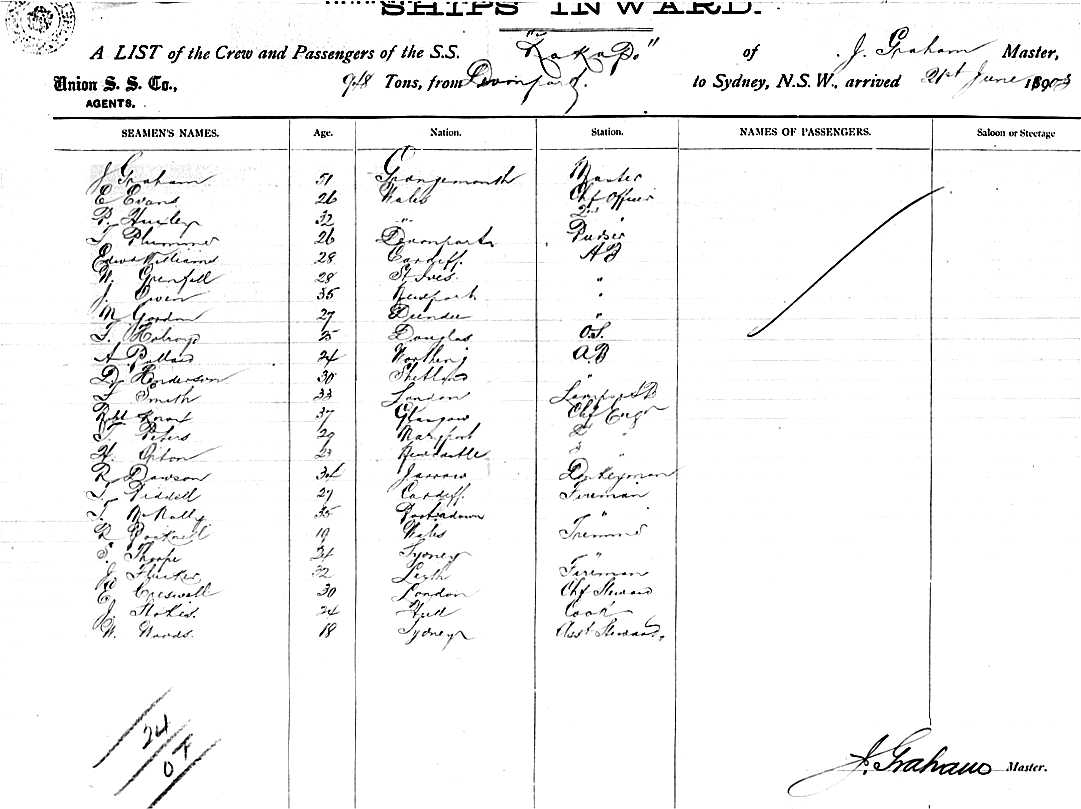 SHIPS INWARD.
A LIST of the Crew and Passengers of the S.S. "Kakapo" of J. Graham Master,
Union S. S. Co., AGENTS. 948 Tons, from Devonport. to Sydney, N.S.W., arrived 21st June 1903
SEAMEN'S NAMES. Age. Nation. Station. NAMES OF PASSENGERS. Saloon or Steerage
J Graham 51 Grangemouth Master
E Evans 26 Wales Chf Officer
P. Huxley 32 " 2nd "
T Plummer 26 Devonport Purser
Edwd Williams 28 Cardiff AB
W. Grenfell 28 St Ives "
J. Owen 35 Newport "
M Gordon 27 Dundee "
T. 25 Douglas O.S.
A Pollard 24 Worthing A.B
D. Henderson 30 Shetland "
T Smith 33 London Lamps AB
Robt Knox 37 Glasgow Chf Engr
T. Peters 29 Maryport 2 "
H. Upton 23 Newcastle 3 "
R Dawson 34 Jarrow Donkeyman
T. Riddell 27 Cardiff Fireman
T. McNally 35 Portadown "
R 19 Wales Trimmer
S. Thorpe 24 Sydney "
J Flucker 32 Leith Fireman
E Creswell 30 London Chf Steward
J. Stokes. 24 Hull Cook
W. Woods. 18 Sydney Asst Steward.
24
0
J. Graham Master.